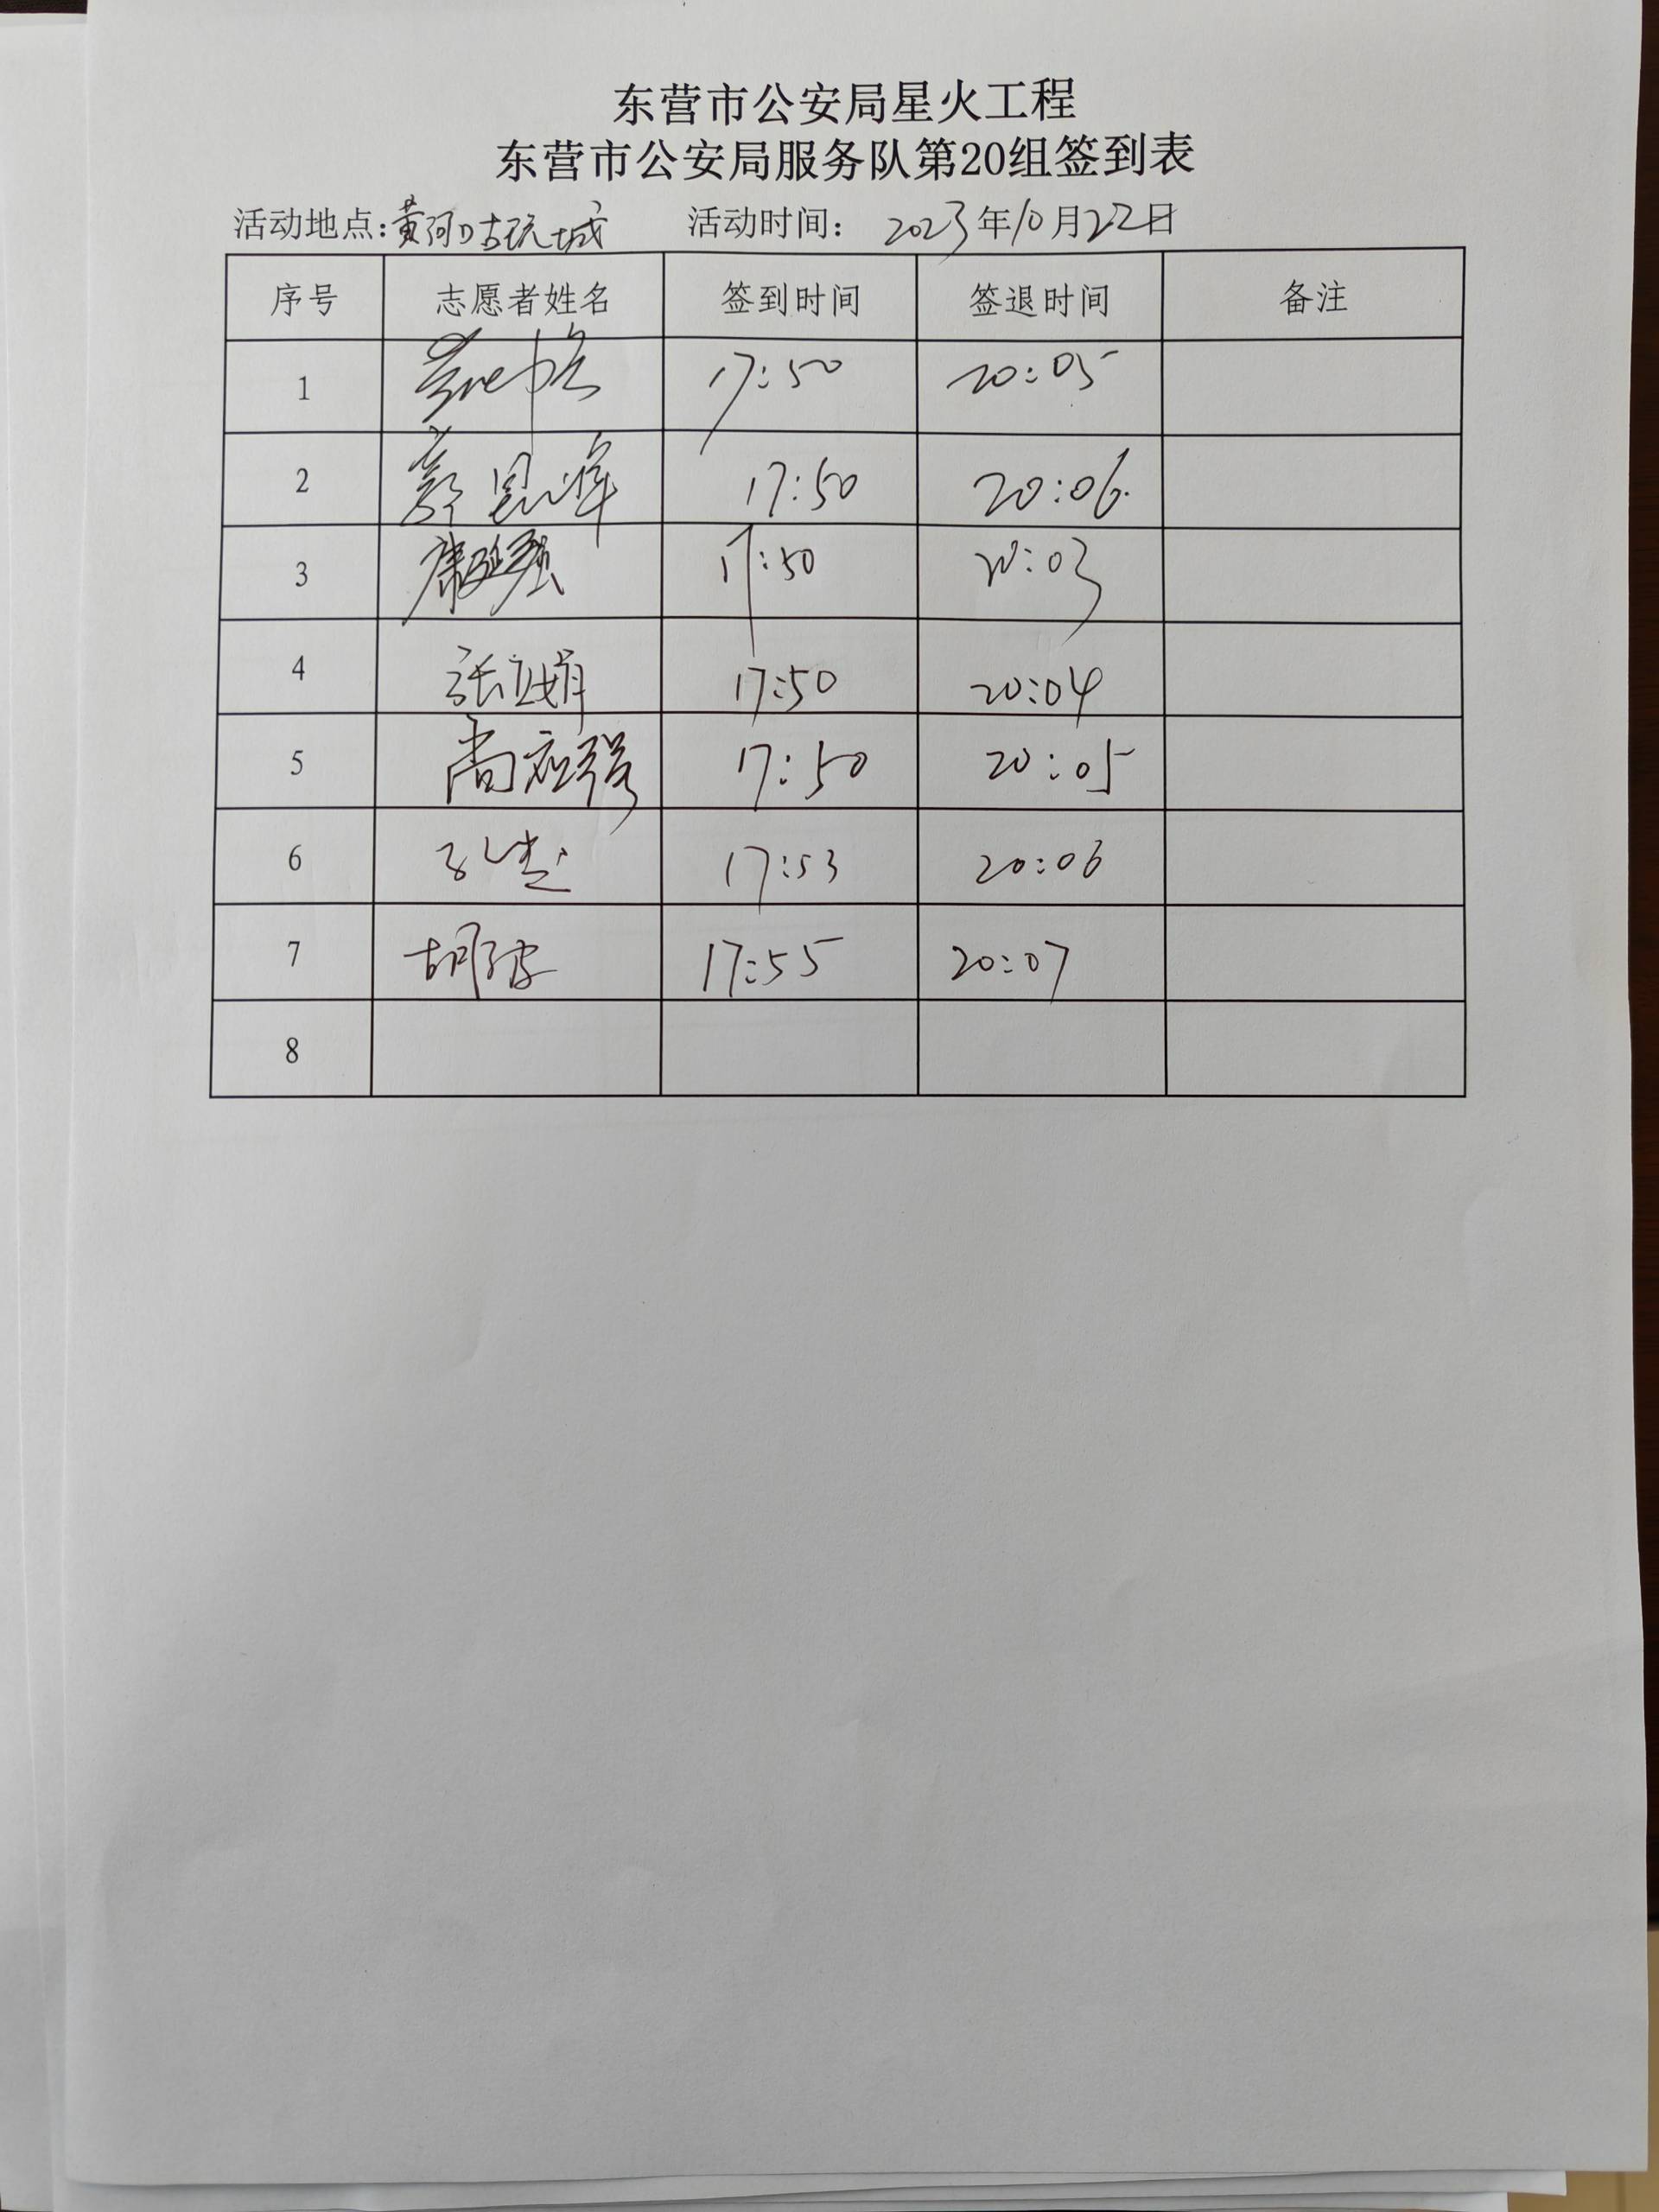 东营市公安局星火工程
东营市公安局服务队第20组签到表
活动地点:黄河口古玩城 活动时间: 2023年10月22日
序号 志愿者姓名 签到时间 签退时间 备注
1 17:50 20:05
2 17:50 20:06
3 康延强 17:50 20:03
4 张亚娟 17:50 20:04
5 尚应强 17:50 20:05
6 17:53 20:06
7 17:55 20:07
8